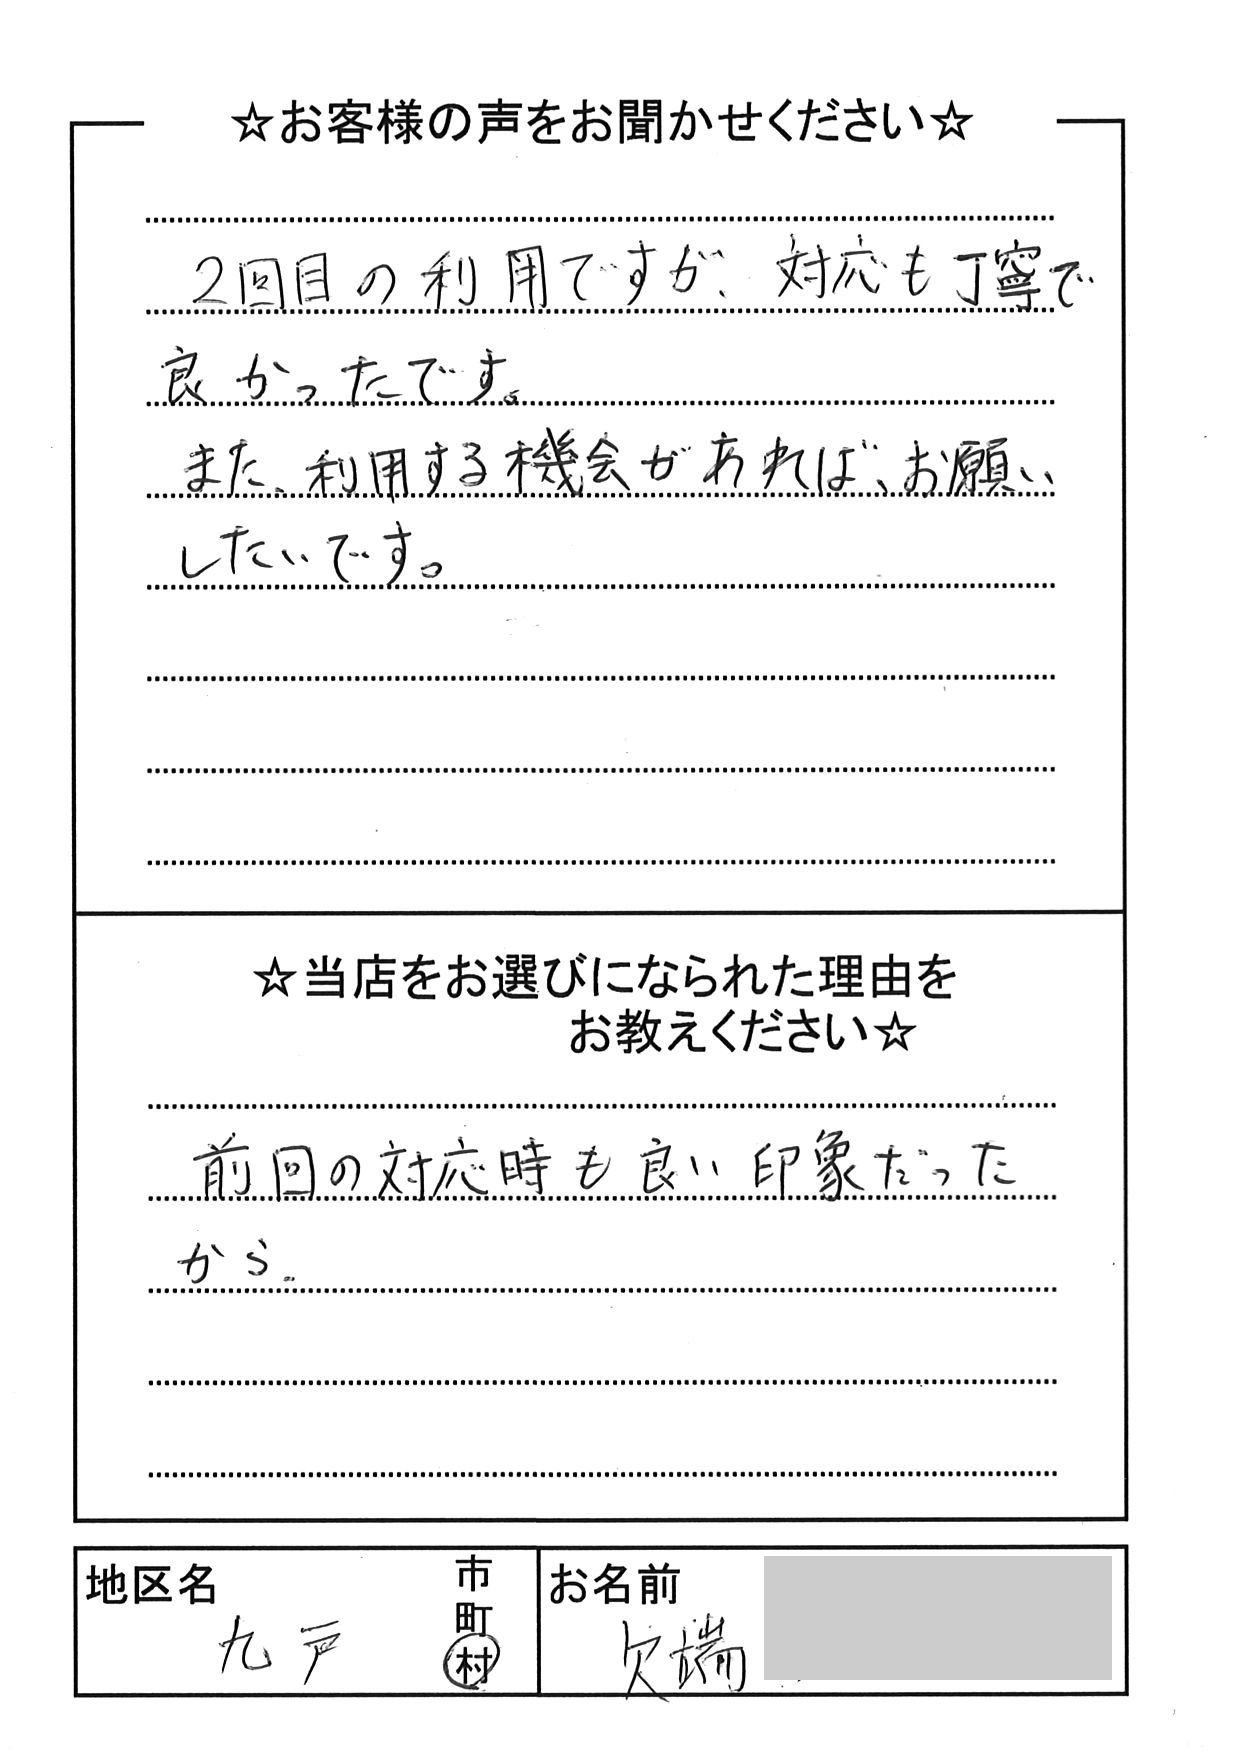 ☆お客様の声をお聞かせください☆
2回目の利用ですが、対応も丁寧で
良かったです。
また、利用する機会があれば、お願い
したいです。
☆当店をお選びになられた理由を
お教えください☆
前回の対応時も良い印象だった
から。
地区名
九戸
市
町
村
お名前
欠端